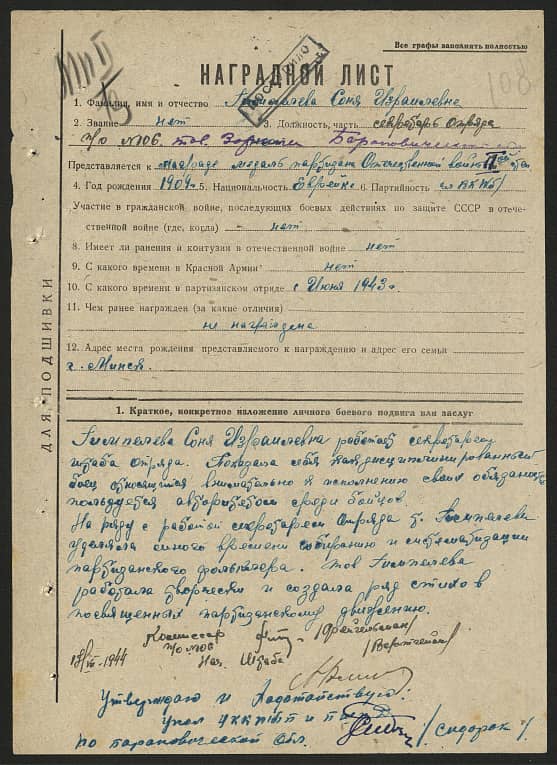 Все графы заполнять полностью
108
НАГРАДНОЙ ЛИСТ
1. Фамилия, имя и отчество Гимпелева Соня Израилевна
2. Звание нет 3. Должность, часть секретарь отряда
п/о №106 тов. Зорина Барановической
Представляется к награде медаль партизана Отечественной войны II ой ст.
4. Год рождения 1909 г. 5. Национальность Еврейка 6. Партийность чл. ВКПб/
Участие в гражданской войне, последующих боевых действиях по защите СССР в отече-
ственной войне (где, когла) нет
8. Имеет ли ранения и контузии в отечественной войне нет
9. С какого времени в Красной Армии нет
10. С какого времени в партизанском отряде с Июня 1943 г.
11. Чем ранее награжден (за какие отличия)
не награждена
12. Адрес места рождения представляемого к награждению и адрес его семьи
г. Минск.
ДЛЯ ПОДШИВКИ
1. Краткое, конкретное изложение личного боевого подвига или заслуг
Гимпелева Соня Израилевна работает секретарем
штаба отряда. Показала себя как дисциплинированный
боец относящийся внимательно к исполнению своих обязаностей
пользуется авторитетом среди бойцов.
На ряду с работой секретарем отряда т. Гимпелева
уделяла много времени собиранию и систематизации
партизанского фольклора. тов Гимпелева
работала творчески и создала ряд стихов
посвященных партизанскому движению.
Комиссар /Фейгельман/
п/о №106
Нач. Штаба /Вертгейм/
18/VII 1944
Утверждаю и Ходотайствую:
Упол ЦККП/б/Б и
по Барановической обл. /Сидорок/